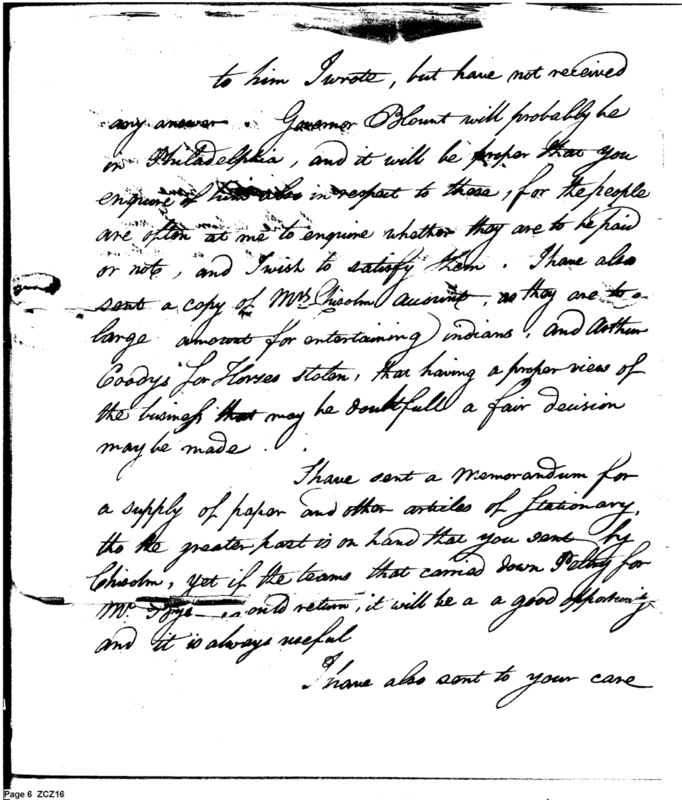 to him I wrote, but have not received
any answer. Governor Blount will probably be
in Philadelphia, and it will be proper that you
enquire of him also in respect to those, for the people
are often at me to enquire whether they are to be paid
or not, and I wish to satisfy them. I have also
sent a copy of Mrs. Chisolm account, as they are to a
large amount for entertaining indians, and Arthur
Coodys for Horses stolen, that having a proper view of
the business that may be doubtfull a fair decision
may be made.
I have sent a Memorandum for
a supply of paper and other articles of Stationary,
tho the greater part is on hand that you sent by
Chisolm, yet if the teams that carried down Peltry for
Mr. return, it will be a a good opportunity
and it is always useful
I have also sent to your care
Page 6 ZCZ16